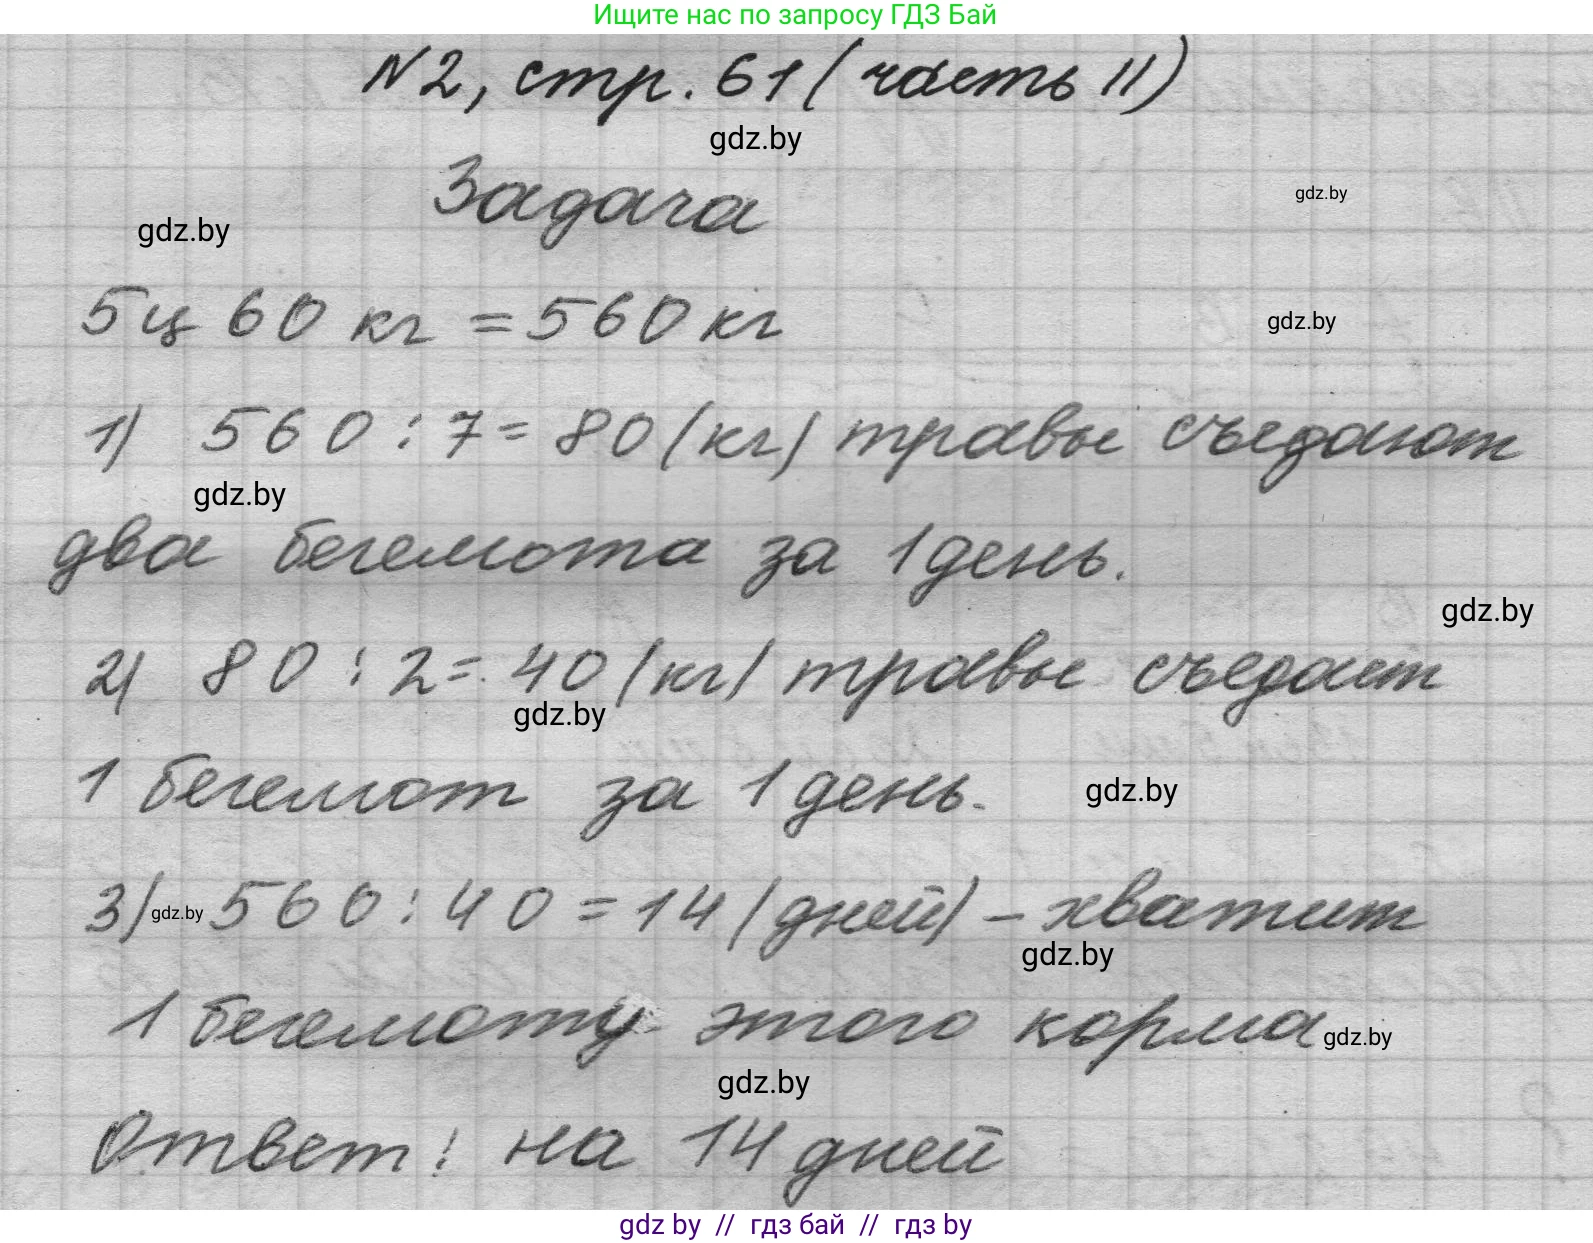 Ищите нас по запросу ГДЗ Бай
N2, стр. 61 (часть II)
gdz.by
Задача
gdz.by
gdz.by
5ц 60 кг = 560 кг
gdz.by
1) 560 : 7 = 80 (кг) травы съедают
gdz.by
два бегемота за 1 день.
gdz.by
2) 80 : 2 = 40 (кг) травы съедает
gdz.by
1 бегемот за 1 день.
gdz.by
3) gdz.by 560 : 40 = 14 (дней) – хватит
gdz.by
1 бегемоту этого корма
gdz.by
gdz.by
Ответ: на 14 дней
gdz by // гдз бай // гдз by